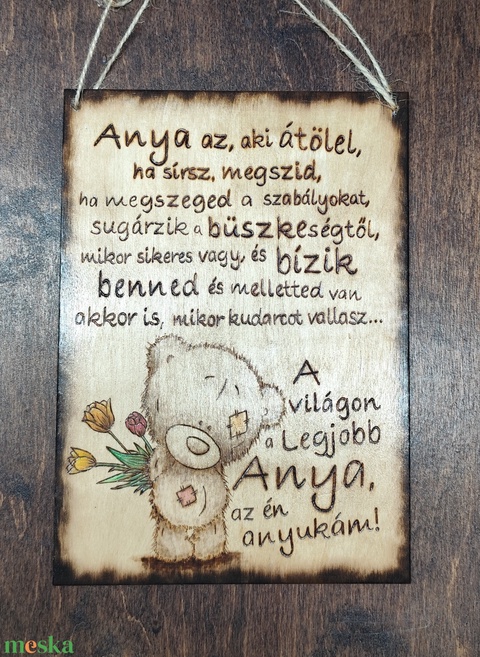 Anya az, aki átölel,
ha sírsz, megszid,
ha megszeged a szabályokat,
sugárzik a büszkeségtől,
mikor sikeres vagy, és bízik
benned és melletted van
akkor is, mikor kudarcot vallasz...
A
világon
a Legjobb
Anya,
az én
anyukám!
meska